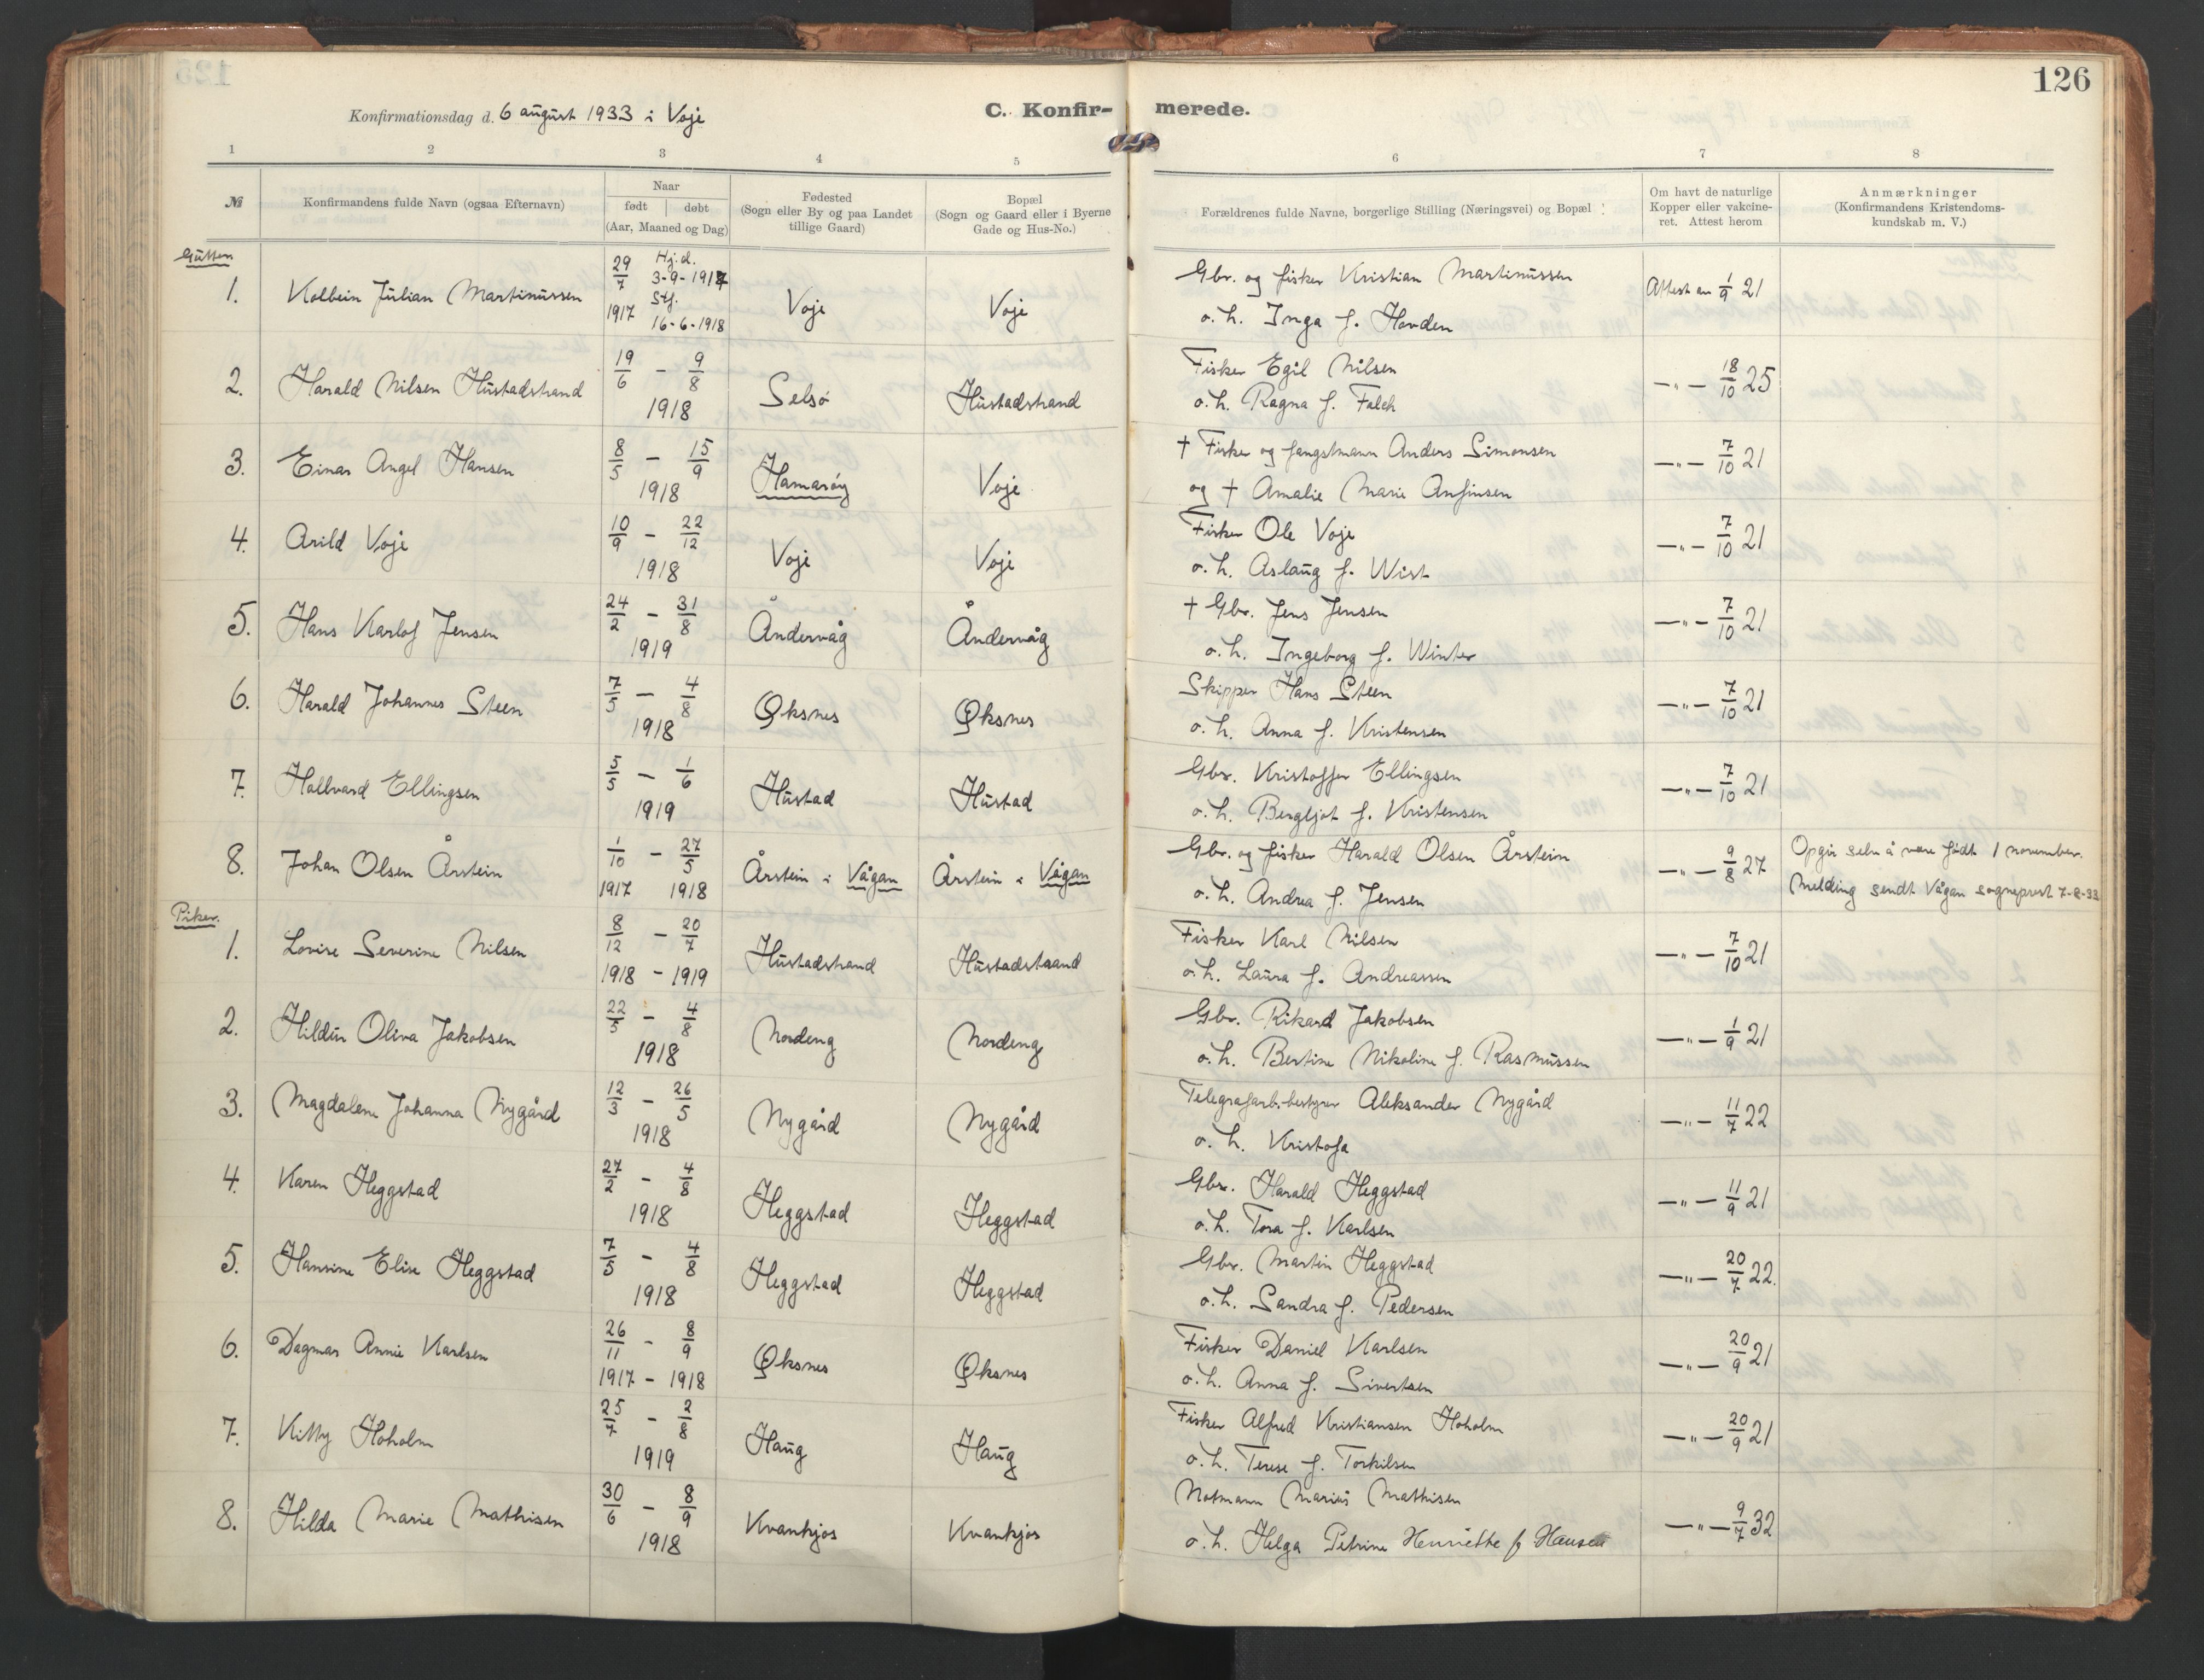 126
Konfirmationsdag d. 6 august 1933 i Voje
C. Konfir-merede.
1 2 3 4 5 6 7 8
№
Konfirmandens fulde Navn (ogsaa Efternavn)
Naar
født | døbt
(Aar, Maaned og Dag)
Fødested
(Sogn eller By og paa Landet
tillige Gaard)
Bopæl
(Sogn og Gaard eller i Byerne
Gade og Hus-No.)
Forældrenes fulde Navne, borgerlige Stilling (Næringsvei) og Bopæl
Om havt de naturlige
Kopper eller vakcine-
ret. Attest herom
Anmærkninger
(Konfirmandens Kristendoms-
kundskab m. V.)
Gutter
1. Kolbein Julian Martinussen 29/7 1917 Hj.d. 3-9-1917 Stf. 16-6-1918 Voje Voje
Gbr. og fisker Kristian Martinussen
o. h. Inga f. Hovden
Attest av 1/9 21
2. Harald Nilsen Hustadstrand 19/6 - 9/8 1918 Selsø Hustadstrand
Fisker Egil Nilsen
o. h. Ragna f. Falch
—"— 18/10 25
3. Einar Angel Hansen 8/5 - 15/9 1918 Hamarøy Voje
† Fisker og fangstmann Anders Simonsen
og † Amalie Marie Anfinsen
—"— 7/10 21
4. Arild Voje 10/9 - 22/12 1918 Voje Voje
Fisker Ole Voje
o. h. Aslaug f. Wist
—"— 7/10 21
5. Hans Karlof Jensen 24/2 - 31/8 1919 Åndervåg Åndervåg
† Gbr. Jens Jensen
o. h. Ingeborg f. Winter
—"— 7/10 21
6. Harald Johannes Steen 7/5 - 4/8 1918 Øksnes Øksnes
Skipper Hans Steen
o. h. Anna f. Kristensen
—"— 7/10 21
7. Hallvard Ellingsen 5/5 - 1/6 1919 Hustad Hustad
Gbr. Kristoffer Ellingsen
o. h. Bergljot f. Kristensen
—"— 7/10 21
8. Johan Olsen Årstein 1/10 - 27/5 1917 1918 Årstein i Vågan Årstein i Vågan
Gbr. og fisker Harald Olsen Årstein
o. h. Andrea f. Jensen
—"— 9/8 27
Opgir selv å være født 1 november.
Melding sendt Vågan sogneprest 7-8-33
Piker.
1. Lovise Severine Nilsen 8/12 - 20/7 1918 - 1919 Hustadstrand Hustadstrand
Fisker Karl Nilsen
o. h. Laura f. Andreassen
—"— 7/10 21
2. Hildur Oliva Jakobsen 22/5 - 4/8 1918 Nordeng Nordeng
Gbr. Rikard Jakobsen
o. h. Bertine Nikoline f. Rasmussen
—"— 1/9 21
3. Magdalene Johanna Nygård 12/3 - 26/5 1918 Nygård Nygård
Telegrafarb.bestyrer Aleksander Nygård
o. h. Kristofa
—"— 11/7 22
4. Karen Heggstad 27/2 - 4/8 1918 Heggstad Heggstad
Gbr. Harald Heggstad
o. h. Tora f. Karlsen
—"— 11/9 21
5. Hansine Elise Heggstad 7/5 - 4/8 1918 Heggstad Heggstad
Gbr. Martin Heggstad
o. h. Sandra f. Pedersen
—"— 20/7 22.
6. Dagmar Annie Karlsen 26/11 - 8/9 1917 - 1918 Øksnes Øksnes
Fisker Daniel Karlsen
o. h. Anna f. Sivertsen
—"— 20/9 21
7. Kitty Hoholm 25/7 - 2/8 1919 Haug Haug
Fisker Alfred Kristiansen Hoholm
o. h. Terese f. Torkilsen
—"— 20/9 21
8. Hilda Marie Mathisen 30/6 - 8/9 1918 Kvankjos Kvankjos
Notmann Marius Mathisen
o. h. Helga Petrine Henriette f Hansen
—"— 9/7 32